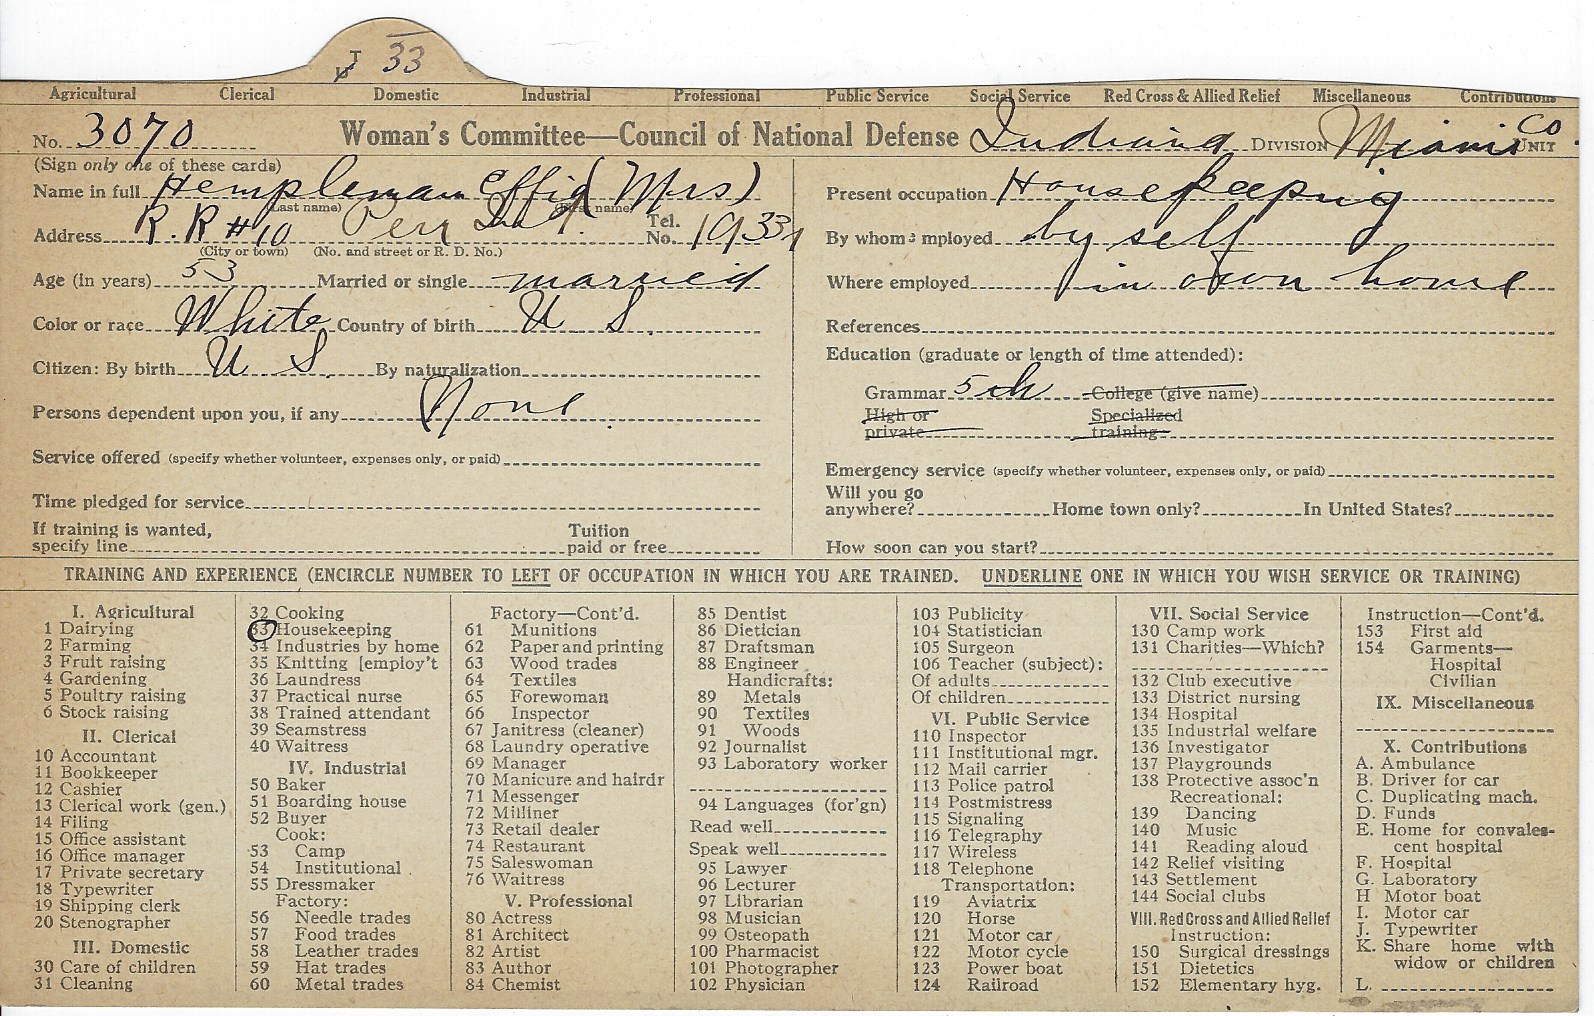 T 33
V
Agricultural Clerical Domestic Industrial Professional Public Service Social Service Red Cross & Allied Relief Miscellaneous Contributions
No. 3070 Woman's Committee—Council of National Defense Indiana DIVISION Miami Co UNIT
(Sign only one of these cards)
Name in full Hempleman Effie (Mrs)
(Last name) (First name)
Address R.R #10 Peru Ind. Tel. No.
(City or town) (No. and street or R. D. No.)
Age (in years) 53 Married or single married
Color or race White Country of birth U S.
Citizen: By birth U S. By naturalization
Persons dependent upon you, if any None
Service offered (specify whether volunteer, expenses only, or paid)
Time pledged for service
If training is wanted,
specify line Tuition paid or free
Present occupation Housekeeping
By whom employed by self
Where employed in own home
References
Education (graduate or length of time attended):
Grammar 5th College (give name)
High or private Specialized training
Emergency service (specify whether volunteer, expenses only, or paid)
Will you go
anywhere? Home town only? In United States?
How soon can you start?
TRAINING AND EXPERIENCE (ENCIRCLE NUMBER TO LEFT OF OCCUPATION IN WHICH YOU ARE TRAINED. UNDERLINE ONE IN WHICH YOU WISH SERVICE OR TRAINING)
I. Agricultural
1 Dairying
2 Farming
3 Fruit raising
4 Gardening
5 Poultry raising
6 Stock raising
II. Clerical
10 Accountant
11 Bookkeeper
12 Cashier
13 Clerical work (gen.)
14 Filing
15 Office assistant
16 Office manager
17 Private secretary
18 Typewriter
19 Shipping clerk
20 Stenographer
III. Domestic
30 Care of children
31 Cleaning
32 Cooking
33 Housekeeping
34 Industries by home
35 Knitting [employ't
36 Laundress
37 Practical nurse
38 Trained attendant
39 Seamstress
40 Waitress
IV. Industrial
50 Baker
51 Boarding house
52 Buyer
Cook:
53 Camp
54 Institutional
55 Dressmaker
Factory:
56 Needle trades
57 Food trades
58 Leather trades
59 Hat trades
60 Metal trades
Factory—Cont'd.
61 Munitions
62 Paper and printing
63 Wood trades
64 Textiles
65 Forewoman
66 Inspector
67 Janitress (cleaner)
68 Laundry operative
69 Manager
70 Manicure and hairdr
71 Messenger
72 Milliner
73 Retail dealer
74 Restaurant
75 Saleswoman
76 Waitress
V. Professional
80 Actress
81 Architect
82 Artist
83 Author
84 Chemist
85 Dentist
86 Dietician
87 Draftsman
88 Engineer
Handicrafts:
89 Metals
90 Textiles
91 Woods
92 Journalist
93 Laboratory worker
94 Languages (for'gn)
Read well
Speak well
95 Lawyer
96 Lecturer
97 Librarian
98 Musician
99 Osteopath
100 Pharmacist
101 Photographer
102 Physician
103 Publicity
104 Statistician
105 Surgeon
106 Teacher (subject):
Of adults
Of children
VI. Public Service
110 Inspector
111 Institutional mgr.
112 Mail carrier
113 Police patrol
114 Postmistress
115 Signaling
116 Telegraphy
117 Wireless
118 Telephone
Transportation:
119 Aviatrix
120 Horse
121 Motor car
122 Motor cycle
123 Power boat
124 Railroad
VII. Social Service
130 Camp work
131 Charities—Which?
132 Club executive
133 District nursing
134 Hospital
135 Industrial welfare
136 Investigator
137 Playgrounds
138 Protective assoc'n
Recreational:
139 Dancing
140 Music
141 Reading aloud
142 Relief visiting
143 Settlement
144 Social clubs
VIII. Red Cross and Allied Relief
Instruction:
150 Surgical dressings
151 Dietetics
152 Elementary hyg.
Instruction—Cont'd.
153 First aid
154 Garments—
Hospital
Civilian
IX. Miscellaneous
X. Contributions
A. Ambulance
B. Driver for car
C. Duplicating mach.
D. Funds
E. Home for convales-
cent hospital
F. Hospital
G. Laboratory
H Motor boat
I. Motor car
J. Typewriter
K. Share home with
widow or children
L.